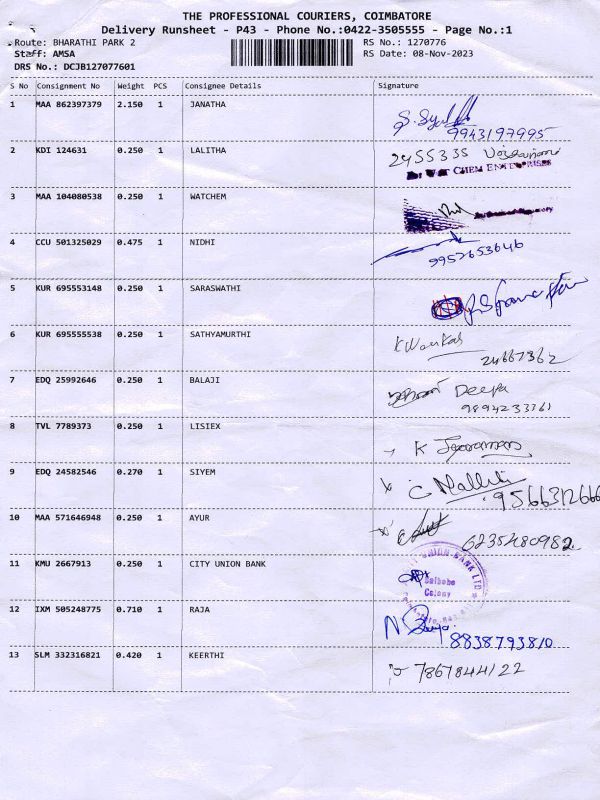 THE PROFESSIONAL COURIERS, COIMBATORE
Delivery Runsheet - P43 - Phone No.:0422-3505555 - Page No.:1
Route: BHARATHI PARK 2 RS No.: 1270776
Staff: AMSA RS Date: 08-Nov-2023
DRS No.: DCJB127077601
S No Consignment No Weight PCS Consignee Details Signature
1 MAA 862397379 2.150 1 JANATHA
9943197995
2 KDI 124631 0.250 1 LALITHA 2455335
CHEM ENTERPRISES
3 MAA 104080538 0.250 1 WATCHEM
4 CCU 501325029 0.475 1 NIDHI
9952653646
5 KUR 695553148 0.250 1 SARASWATHI
6 KUR 695555538 0.250 1 SATHYAMURTHI
24667362
7 EDQ 25992646 0.250 1 BALAJI Deepa
9894233761
8 TVL 7789373 0.250 1 LISIEX K Jayaraman
9 EDQ 24582546 0.270 1 SIYEM C Malliki
9566312666
10 MAA 571646948 0.250 1 AYUR 6235480982
11 KMU 2667913 0.250 1 CITY UNION BANK
UNION BANK LTD
Saibaba
Colony
12 IXM 505248775 0.710 1 RAJA
8838793810
13 SLM 332316821 0.420 1 KEERTHI 7867844122